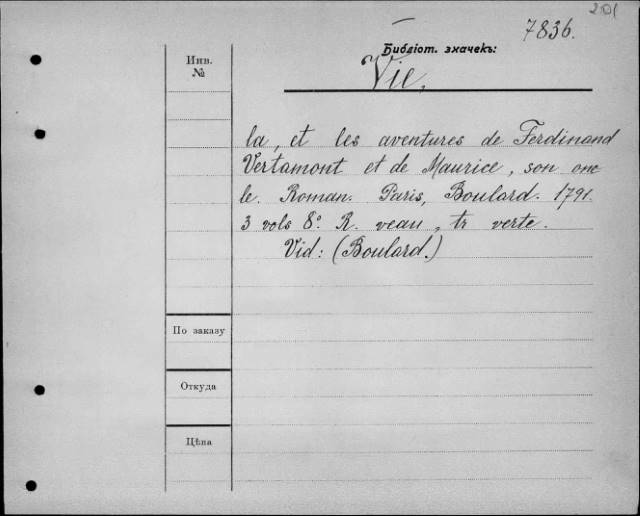 201
7836.
Библіот. значекъ:
Инв.
№
Vie,
la, et les aventures de Ferdinand
Vertamont et de Maurice, son onc
le. Roman. Paris, Boulard. 1791.
3 vols 8º. R. veau, tr verte.
Vid: (Boulard.)
По заказу
Откуда
Цѣна